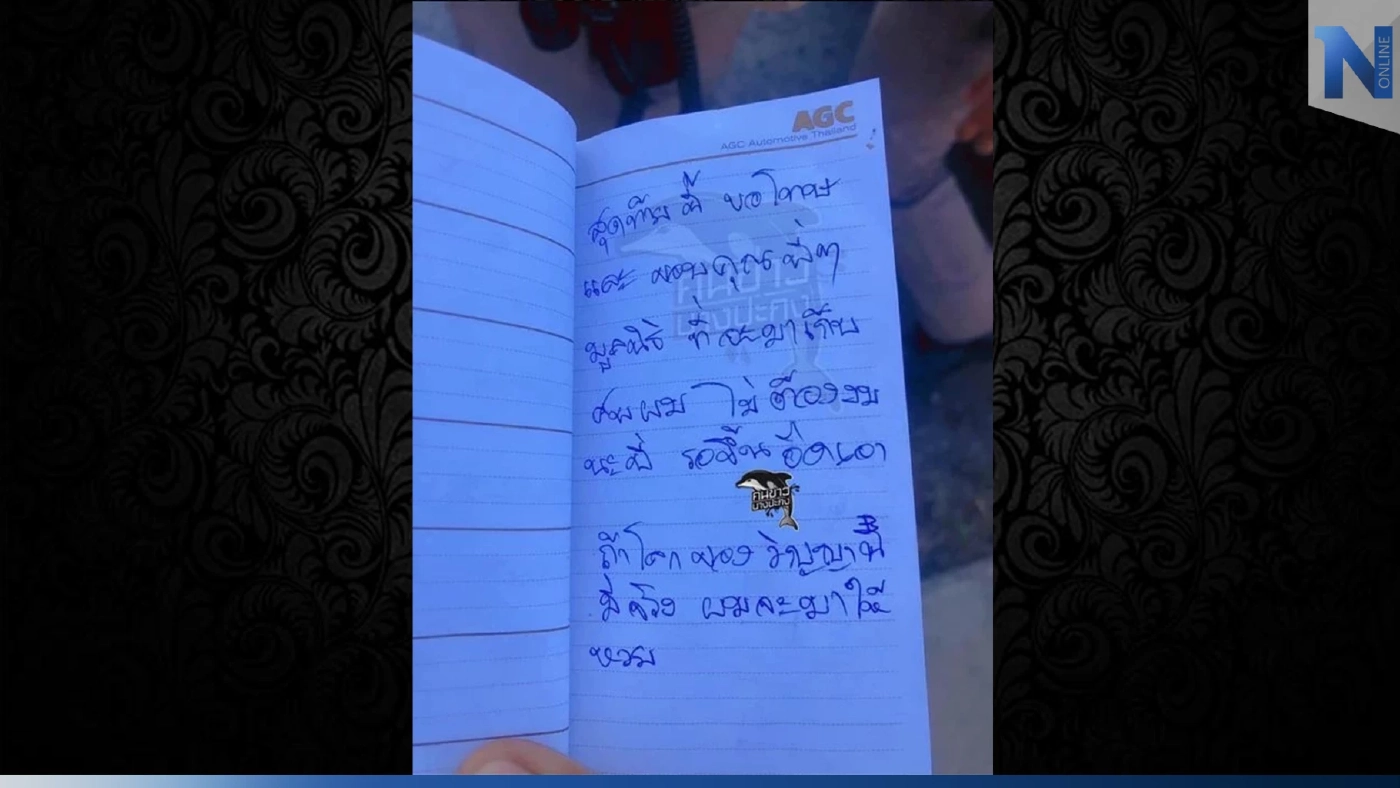 N ONLINE
AGC
AGC Automotive Thailand
สุดท้ายนี้ ขอโทษ
และ ขอบคุณพี่ๆ
มูลนิธิ ที่จะมาเก็บ
ศพผม ไม่ต้องงม
นะพี่ รอขึ้นอืดเอา
คนข่าว
บางปะกง
ถ้าโลกของวิญญาณ
มีจริง ผมจะมาให้
หวย